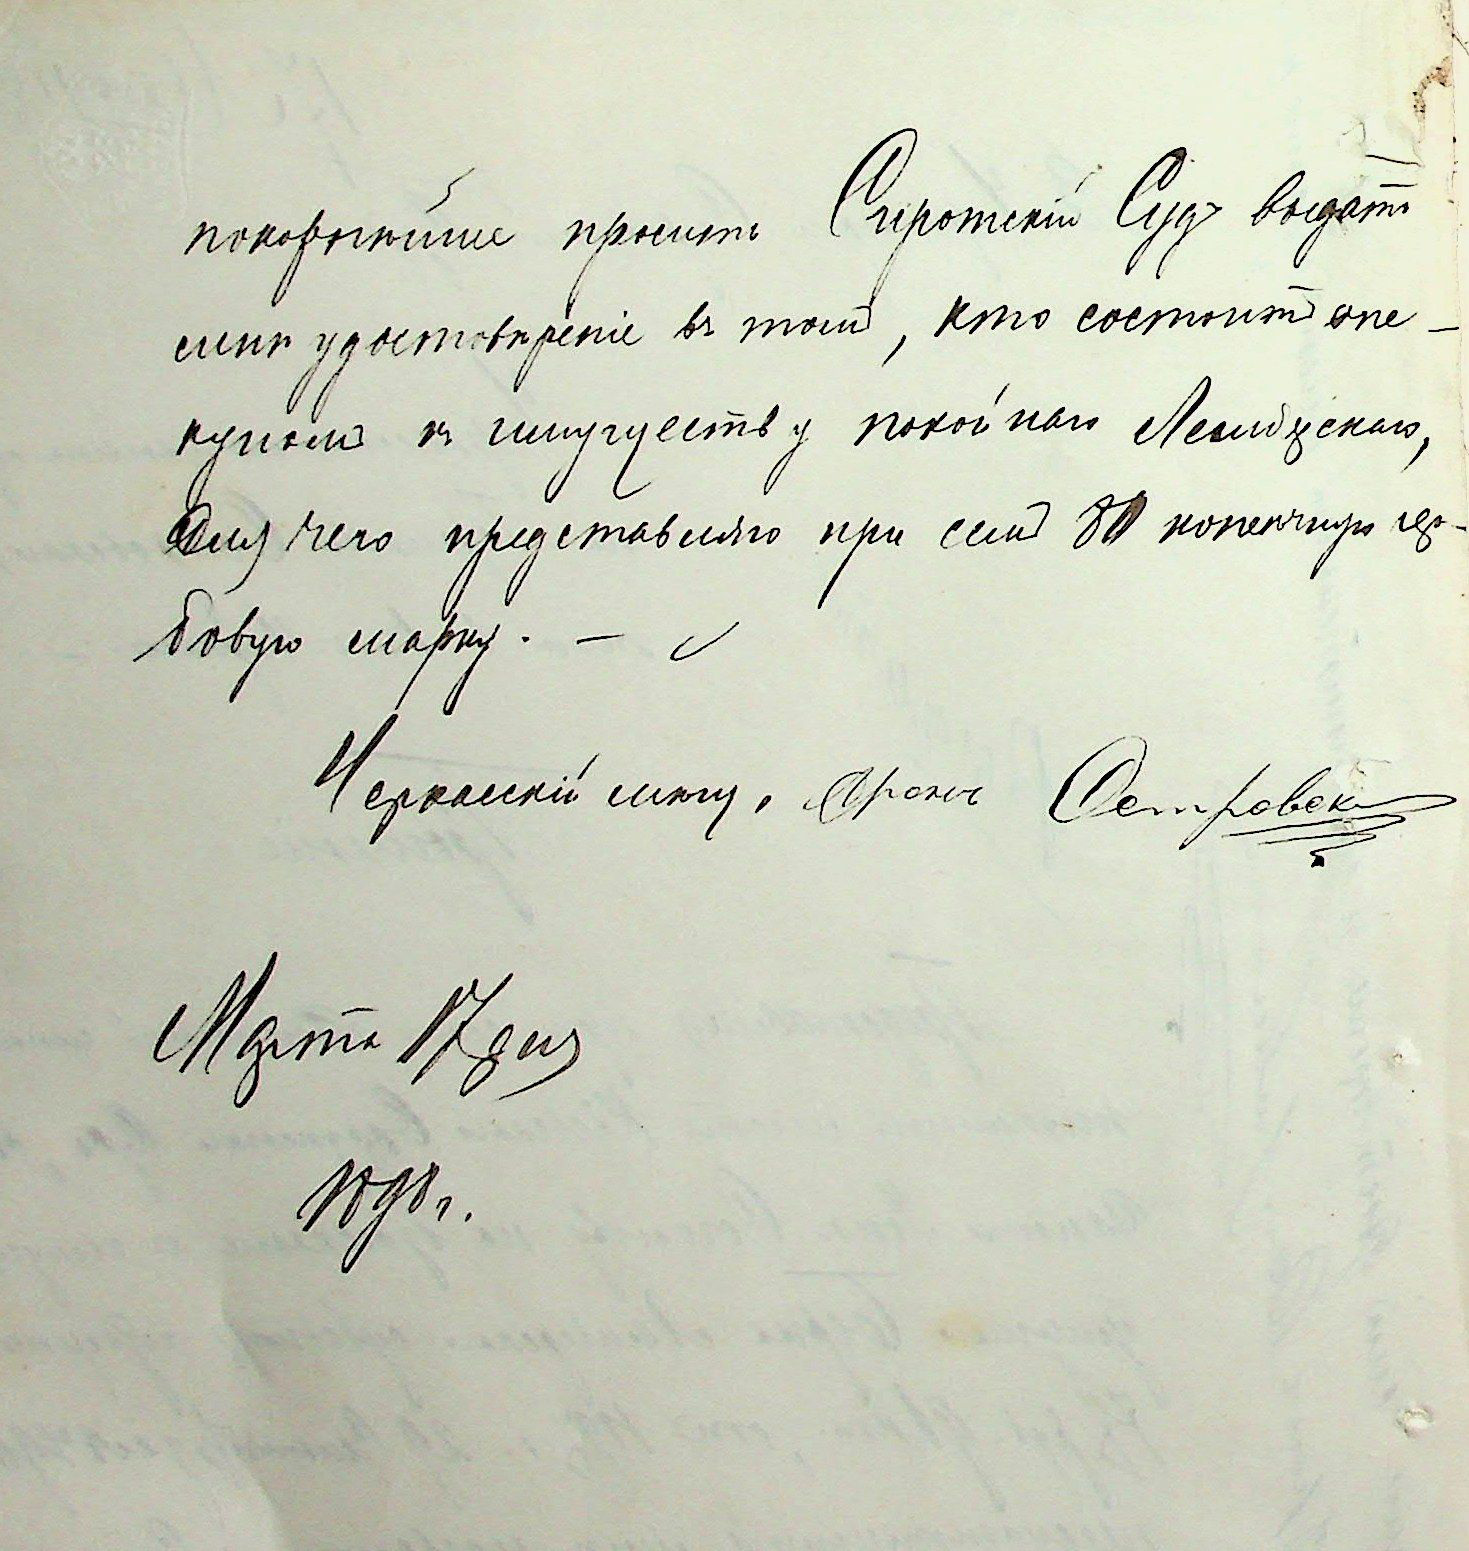 покорнѣйше просить Сиротскій Судъ выдать
мнѣ удостовѣреніе въ томъ, кто состоитъ опе-
куномъ къ имуществу покойнаго
для чего представляю при семъ 80 копеечную гер-
бовую марку. —
Черкасскій мѣщ. Аронъ Островскій
Марта 17 дня
1898 г.